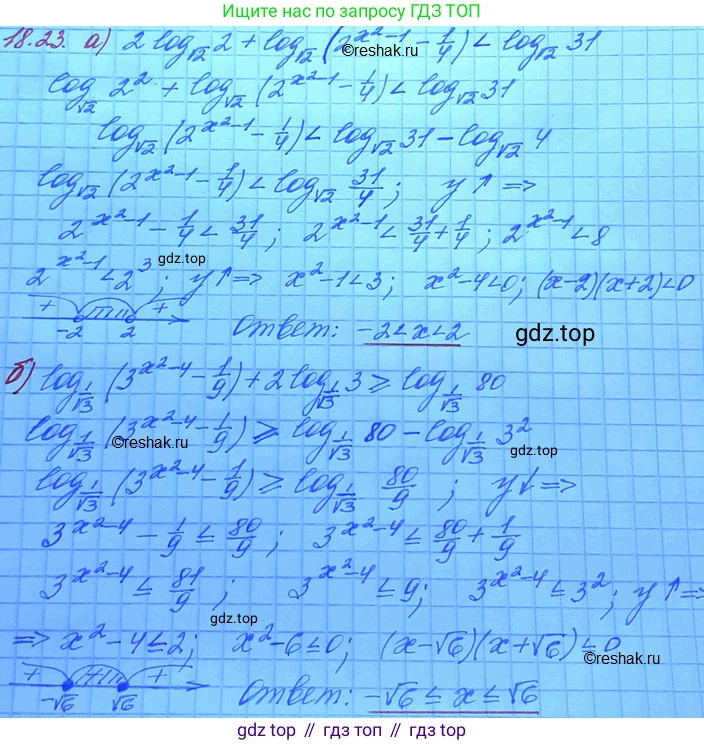 Ищите нас по запросу ГДЗ ТОП
18.23. а) 2 log_√2 2 + log_√2 (2^(x²-1) - 1/4) < log_√2 31
©reshak.ru
log_√2 2² + log_√2 (2^(x²-1) - 1/4) < log_√2 31
log_√2 (2^(x²-1) - 1/4) < log_√2 31 - log_√2 4
log_√2 (2^(x²-1) - 1/4) < log_√2 31/4 ; y ↑ =>
2^(x²-1) - 1/4 < 31/4 ; 2^(x²-1) < 31/4 + 1/4 ; 2^(x²-1) < 8
gdz.top
2^(x²-1) < 2³ ; y ↑ => x²-1 < 3 ; x²-4 < 0 ; (x-2)(x+2) < 0
+ - +
-2 2 Ответ: -2 < x < 2
gdz.top
б) log_1/√3 (3^(x²-4) - 1/9) + 2 log_1/√3 3 ⩾ log_1/√3 80
log_1/√3 (3^(x²-4) - 1/9) ⩾ log_1/√3 80 - log_1/√3 3²
©reshak.ru
gdz.top
log_1/√3 (3^(x²-4) - 1/9) ⩾ log_1/√3 80/9 ; y ↓ =>
3^(x²-4) - 1/9 ≤ 80/9 ; 3^(x²-4) ≤ 80/9 + 1/9
3^(x²-4) ≤ 81/9 ; 3^(x²-4) ≤ 9 ; 3^(x²-4) ≤ 3² ; y ↑ =>
gdz.top
=> x²-4 ≤ 2 ; x²-6 ≤ 0 ; (x-√6)(x+√6) ≤ 0
©reshak.ru
+ - +
-√6 √6 Ответ: -√6 ≤ x ≤ √6
gdz.top // гдз.топ // гдз.top